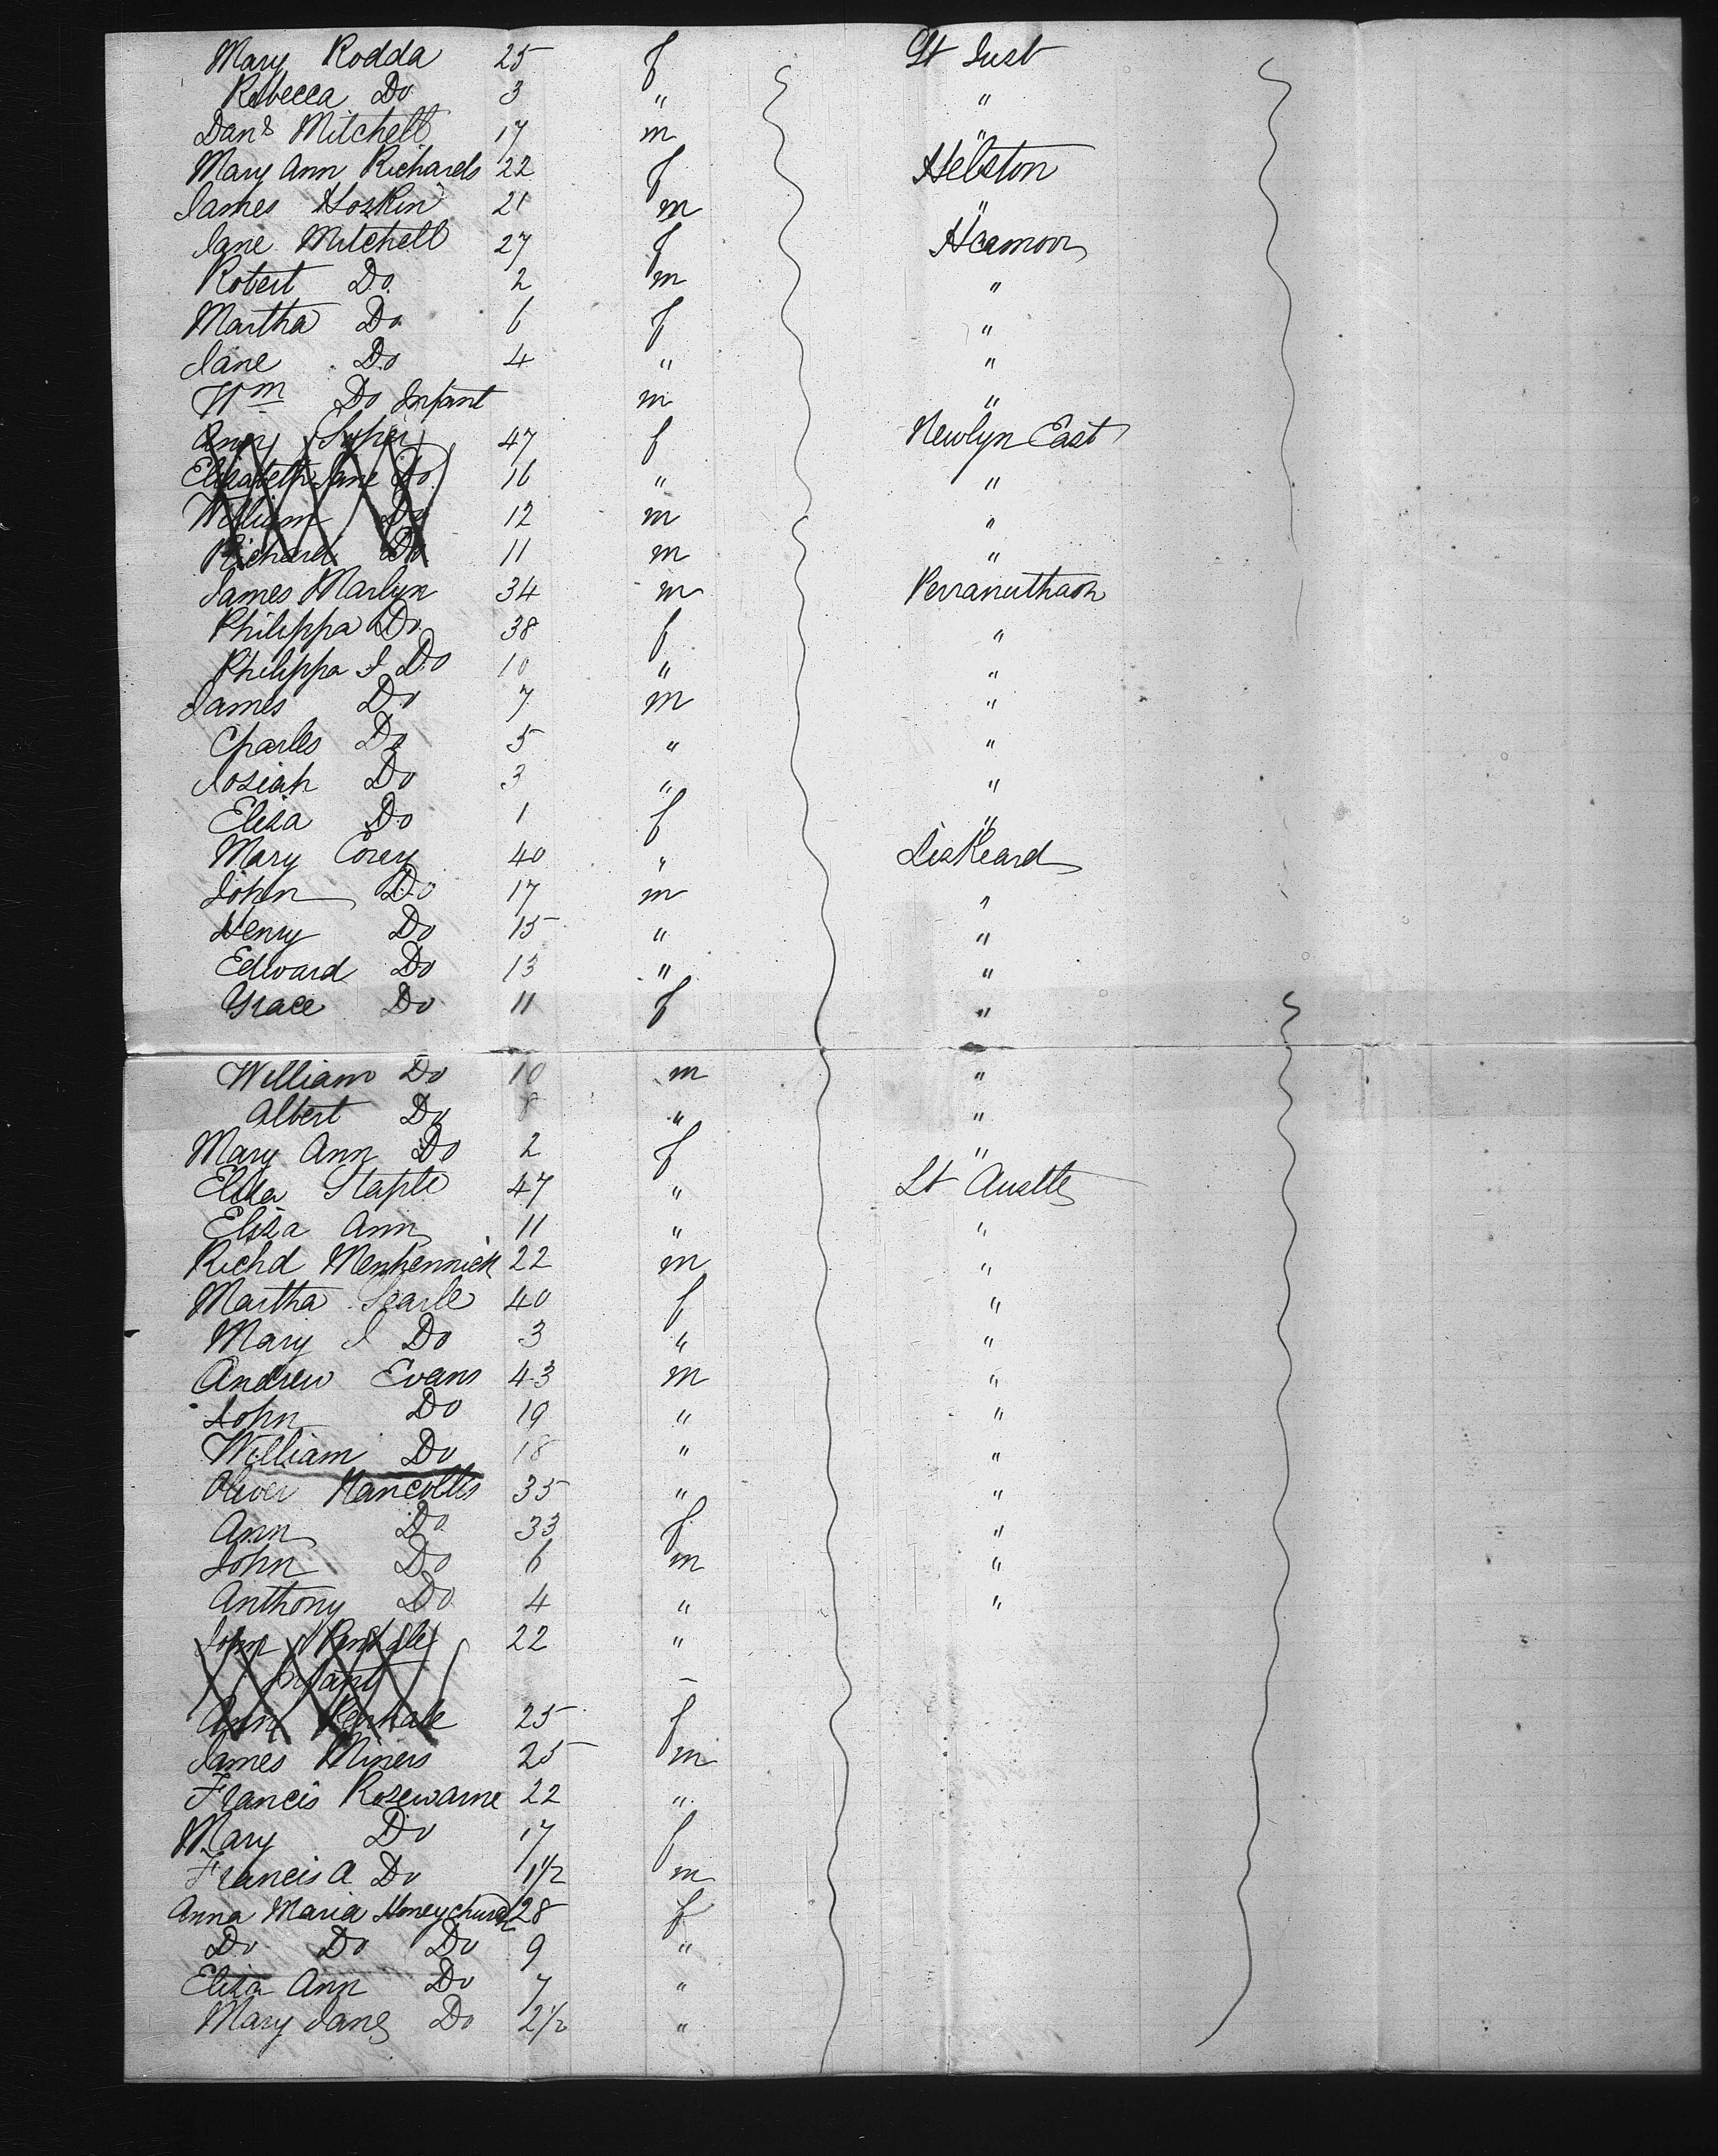 Mary Rodda 25 f St Just
Rebecca Do 3 " "
Danl Mitchell 17 m "
Mary Ann Richards 22 f Helston
James Hoskin 21 m "
Jane Mitchell 27 f Heamoor
Robert Do 2 m "
Martha Do 6 f "
Jane Do 4 " "
Wm Do Infant m "
Ann 47 f Newlyn East
Elizabeth Jane Do 16 " "
William Do 12 m "
Richard Do 11 m "
James Martyn 34 m Perranuthnoe
Philippa Do 38 f "
Philippa J Do 10 " "
James Do 7 m "
Charles Do 5 " "
Josiah Do 3 " "
Eliza Do 1 f "
Mary Corey 40 " Liskeard
John Do 17 m "
Henry Do 15 " "
Edward Do 13 " "
Grace Do 11 f "
William Do 10 m "
Albert Do 8 " "
Mary Ann Do 2 f "
Eliza Staple 47 " St Austle
Eliza Ann 11 " "
Richd Menhennick 22 m "
Martha Searle 40 f "
Mary J Do 3 " "
Andrew Evans 43 m "
John Do 19 " "
William Do 18 " "
Oliver Hancollis 35 " "
Ann Do 33 f "
John Do 6 m "
Anthony Do 4 " "
John 22 "
Infant –
Ann Penhale 25 f
James Miners 25 m
Francis Rosewarne 22 "
Mary Do 17 f
Francis A Do 1 1/2 m
Anna Maria Honeychurch 28 f
Do Do Do 9 "
Eliza Ann Do 7 "
Mary Jane Do 2 1/2 "